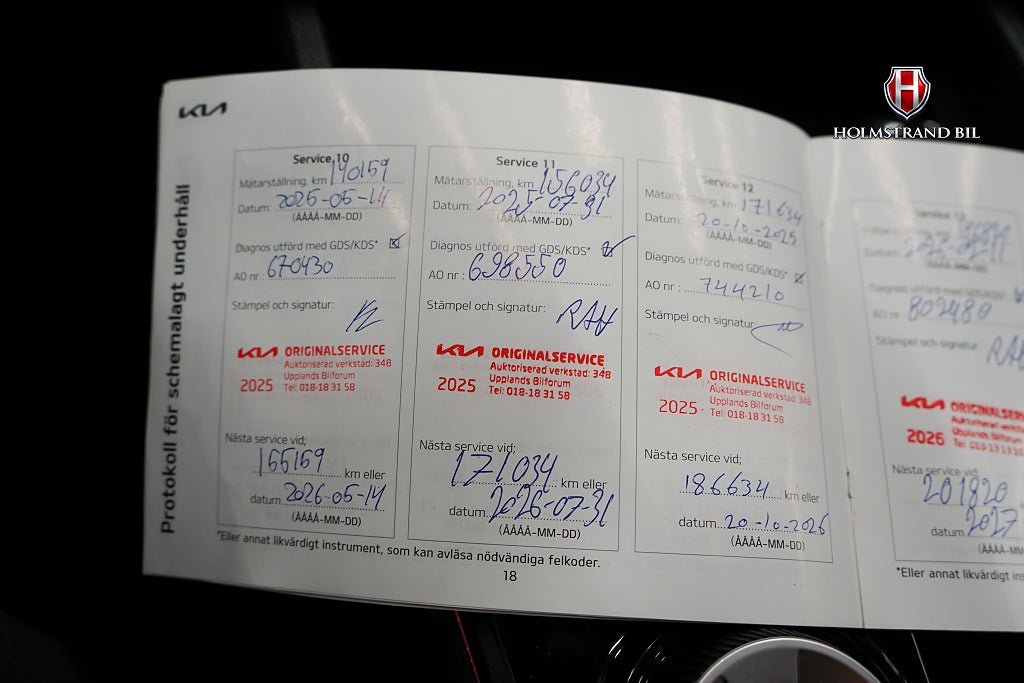 HOLMSTRAND BIL
KIA
Protokoll för schemalagt underhåll
Service 10
Mätarställning, km 140159
Datum: 2025-05-14
(ÅÅÅÅ-MM-DD)
Diagnos utförd med GDS/KDS*
AO nr : 670430
Stämpel och signatur:
KIA ORIGINALSERVICE
Auktoriserad verkstad: 348
Upplands Bilforum
2025 Tel: 018-18 31 58
Nästa service vid;
155159 km eller
datum 2026-05-14
(ÅÅÅÅ-MM-DD)
Service 11
Mätarställning, km 156034
Datum: 2025-07-31
(ÅÅÅÅ-MM-DD)
Diagnos utförd med GDS/KDS*
AO nr : 698550
Stämpel och signatur:
RAH
KIA ORIGINALSERVICE
Auktoriserad verkstad: 348
Upplands Bilforum
2025 Tel: 018-18 31 58
Nästa service vid;
171034 km eller
datum 2026-07-31
(ÅÅÅÅ-MM-DD)
Service 12
Mätarställning, km 171634
Datum: 20-10-2025
(ÅÅÅÅ-MM-DD)
Diagnos utförd med GDS/KDS*
AO nr : 744210
Stämpel och signatur:
KIA ORIGINALSERVICE
Auktoriserad verkstad: 348
Upplands Bilforum
2025 Tel: 018-18 31 58
Nästa service vid;
186634 km eller
datum 20-10-2026
(ÅÅÅÅ-MM-DD)
*Eller annat likvärdigt instrument, som kan avläsa nödvändiga felkoder.
18
Service 13
Datum:
Diagnos utförd med GDS/KDS*
AO nr : 802480
Stämpel och signatur:
KIA ORIGINALSER
Auktoriserad verks
Upplands Bilforum
2026
Nästa service vid;
201820
datum 2027
(ÅÅÅÅ-MM
*Eller annat likvärdigt ins